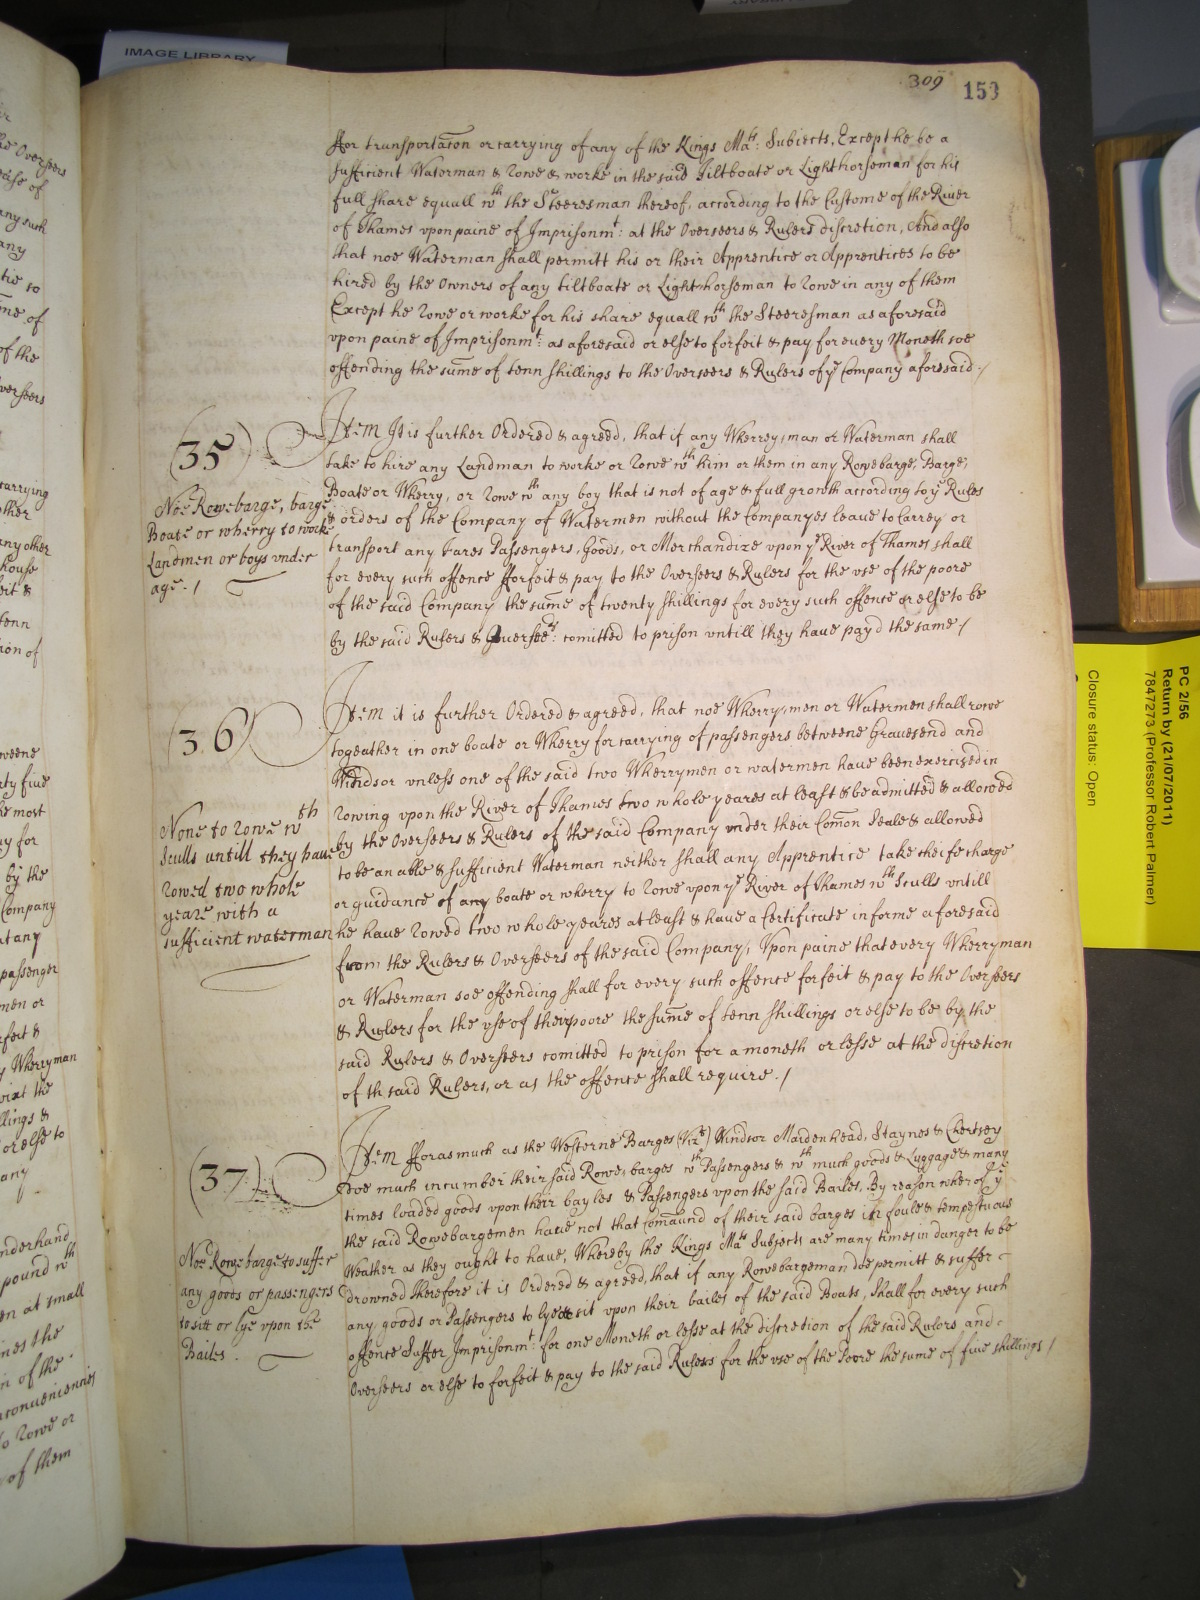 IMAGE LIBRARY
309
153
ffor transportacon or carrying of any of the Kings Mats: Subiects, Except he be a
sufficient Waterman & Rowe & worke in the said Tiltboate or Lighthorseman for his
full share equall wth the Steeresman thereof, according to the Custome of the River
of Thames vpon paine of Imprisonmt: at the Overseers & Rulers discretion, And also
that noe Waterman shall permitt his or their Apprentice or Apprentices to be
hired by the Owners of any tiltboate or Lighthorseman to Rowe in any of them
Except he Rowe or worke for his share equall wth the Steeresman as aforesaid
vpon paine of Imprisonmt: as aforesaid or else to forfeit & pay for every Moneth soe
offending the sume of tenn shillings to the Overseers & Rulers of ye Company aforesaid. /
(35)
Item It is further Ordered & agreed, that if any Wherrey,man or Waterman shall
take to hire any Landman to worke or Rowe wth him or them in any Rowebarge, Barge,
Boate or Wherry, or Rowe wth any boy that is not of age & full growth according to ye Rules
& orders of the Company of Watermen without the Companyes leaue to Carrey or
transport any fares Passengers, Goods, or Merchandize vpon ye River of Thames shall
for every such offence fforfeit & pay to the Overseers & Rulers for the vse of the poore
of the said Company the sume of twenty shillings for every such offence or else to be
by the said Rulers & Ouerseers: comitted to prison vntill they haue payd the same /
Noe Rowebarge, barge
Boate or wherry to worke
Landmen or boys vnder
age. /
(36)
Item it is further Ordered & agreed, that noe Wherry,men or Watermen shall rowe
togeather in one boate or Wherry for carrying of passengers betweene Gravesend and
Windsor vnless one of the said two Wherrymen or watermen have been exercised in
Rowing vpon the River of Thames two whole yeares at least & be admitted & allowed
by the Overseers & Rulers of the said Company vnder their Comon Seale & allowed
to be an able & sufficient Waterman neither shall any Apprentice take the charge
or guidance of any boate or wherry to Rowe vpon ye River of Thames wth Sculls vntill
he have Rowed two whole yeares at least & have a Certificate in forme aforesaid
from the Rulers & Overseers of the said Company, Vpon paine that every Wherryman
or Waterman soe offending shall for every such offence forfeit & pay to the Overseers
& Rulers for the vse of their poore the sume of tenn shillings or else to be by the
said Rulers & Overseers comitted to prison for a moneth or lesse at the discretion
of th said Rulers, or as the offence shall require. /
None to Rowe wth
Sculls untill they haue
rowed two whole
yeare with a
sufficient waterman
(37)
Item fforasmuch as the Westerne Barges (Vizt) Windsor Maidenhead, Staynes & Chertsey
doe much incumber their said Rowe,barges wth Passengers & wth much goods & Luggage & many
times loaded goods vpon their bayles & Passengers vpon the said Bailes, By reason wher of ye
the said Rowebargemen haue not that comaund of their said barges in foule & tempestuous
Weather as they ought to have, Whereby the Kings Mats Subjects are many times in danger to be
drowned Therefore it is Ordered & agreed, that if any Rowebargeman doe permitt & suffer
any goods or Passengers to lye & sit vpon their bailes of the said Boats, shall for every such
offence Suffer Imprisonmt: for one Moneth or lesse at the discretion of the said Rulers and
Overseers or else to forfeit & pay to the said Rulers for the vse of the Poore the sume of five shillings /
Noe Rowebarge to suffer
any goods or passengers
to sitt or lye vpon the
Bailes.
PC 2/56
Return by (21/07/2011)
7847273 (Professor Robert Palmer)
Closure status: Open